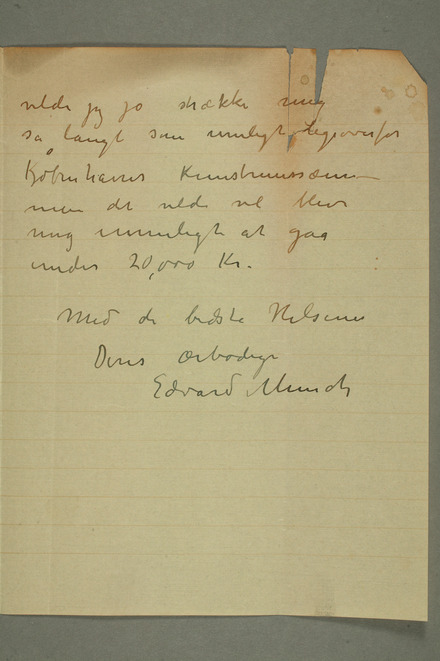 vilde jeg jo strække mig
så langt som muligt ligeoverfor
Kjøbenhavns Kunstmuseum –
men det vilde vel blive
mig umuligt at gaa
under 20,000 Kr.
Med de bedste Hilsener
Deres ærbødige
Edvard Munch